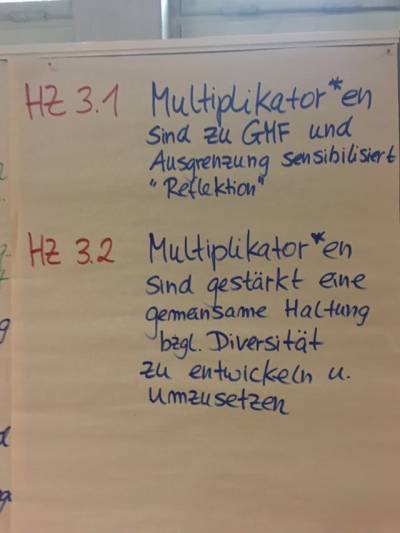 HZ 3.1 Multiplikator*en
sind zu GMF und
Ausgrenzung sensibilisiert
"Reflektion"
HZ 3.2 Multiplikator*en
sind gestärkt eine
gemeinsame Haltung
bzgl. Diversität
zu entwickeln u.
umzusetzen